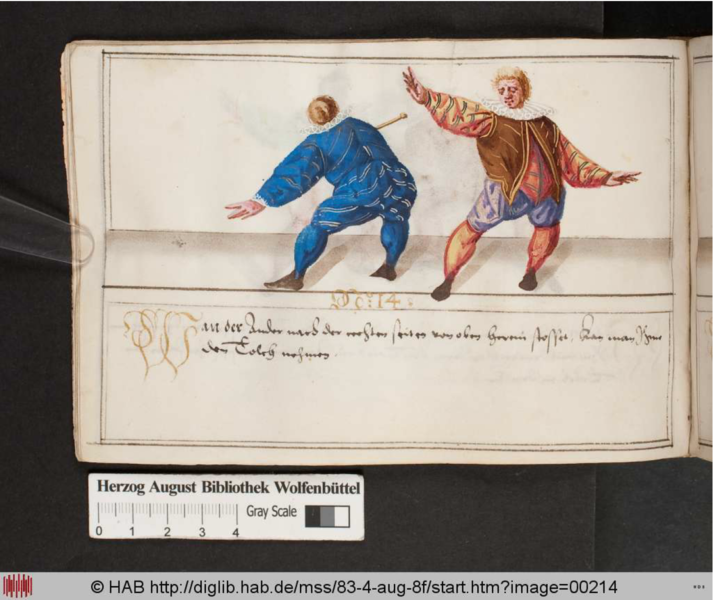 No: 14.
Wan der Ander nach der rechten seiten von oben herein stosset, Kan man Ihme
den Tolch nehmen.
Herzog August Bibliothek Wolfenbüttel
0 1 2 3 4
Gray Scale
© HAB http://diglib.hab.de/mss/83-4-aug-8f/start.htm?image=00214